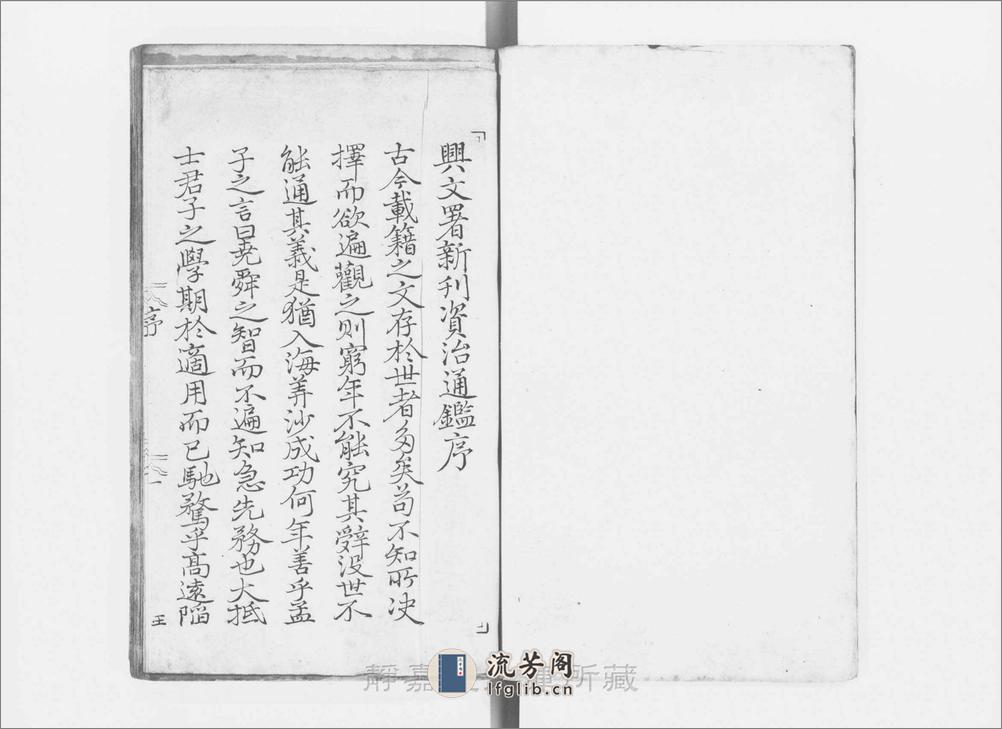 興文署新刊資治通鑑序
古今載籍之文存於世者多矣苟不知所決
擇而欲遍觀之則窮年不能究其辭没世不
能通其義是猶入海筭沙成功何年善乎孟
子之言曰堯舜之智而不遍知急先務也大抵
士君子之學期於適用而已馳騖乎高遠陷
序
一
王
靜嘉
所藏
流芳阁
lfglib.cn